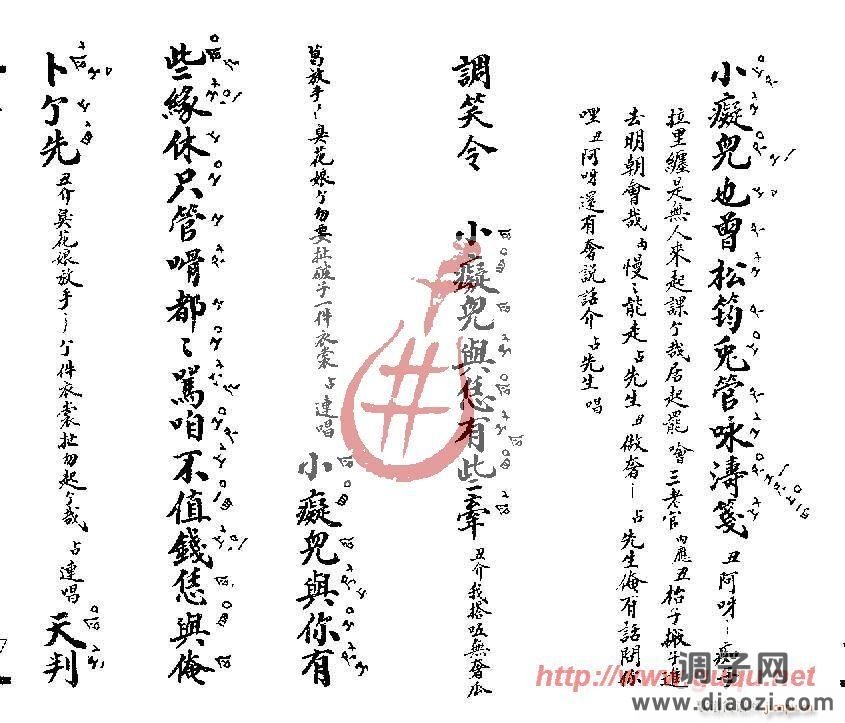 小癡兒也曾松筠兔管咏濤箋 丑阿呀〻痴子
拉里纏是無人來起課个哉居起罷 噲三老官 内應 丑枱子搬子進
去明朝會哉 内慢〻能走 占先生 丑做奢〻 占先生俺有話問你
哩 丑阿呀還有奢説話介 占先生 唱
調笑令 小癡兒與恁有些牽 丑介我搭𠍽無奢瓜
葛放手〻臭花娘个勿要扯破子一件衣裳 占連唱 小癡兒與你有
些緣休只管嘮都〻罵咱不值錢恁與俺
卜个先 丑介臭花娘放手〻个件衣裳扯勿起个哉 占連唱 天判
http://www.guqu.net
调子网
www.diaozi.com